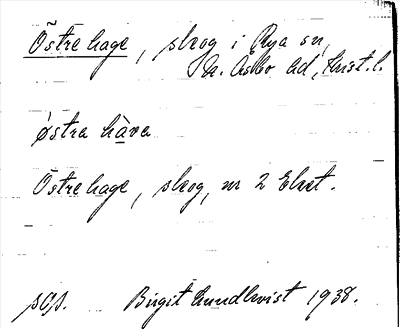 Östrehage, skog i Rya sn,
N. Åsbo hd, Krist. l.
østra hàva
Östrehage, skog, nr 2 Eket.
Birgit Lundkvist 1938.